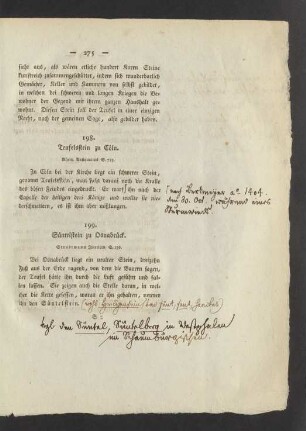 — 275 —
sieht aus, als wären etliche hundert Karren Steine
künstreich zusammengeschüttet, indem sich wunderbarlich
Gemächer, Keller und Kammern von selbst gebildet,
in welchen bei schweren und langen Kriegen die Be-
wohner der Gegend mit ihrem ganzen Haushalt ge-
wohnt. Diesen Stein soll der Teufel in einer einzigen
Nacht, nach der gemeinen Sage, also gebildet haben.
198.
Teufelsstein zu Cöln.
In Cöln bei der Kirche liegt ein schwerer Stein,
genannt Teufelsstein, man sieht daran noch die Kralle
des bösen Feindes eingedrückt. Er warf ihn nach der
Capelle der heiligen drei Könige und wollte sie nie-
derschmettern, es ist ihm aber mißlungen.
a° 1404.
den 30. Oct.
199.
Süntelstein zu Osnabrück.
Bei Osnabrück liegt ein uralter Stein, dreizehn
Fuß aus der Erde ragend, von dem die Bauern sagen,
der Teufel hätte ihn durch die Luft geführt und fal-
len lassen. Sie zeigen auch die Stelle daran, woran
die Kette gesessen, woran er ihn gehalten, nennen
ihn den Süntelstein.
vgl. den Süntel, Süntelberg in Westphalen
im Schaumburgischen.